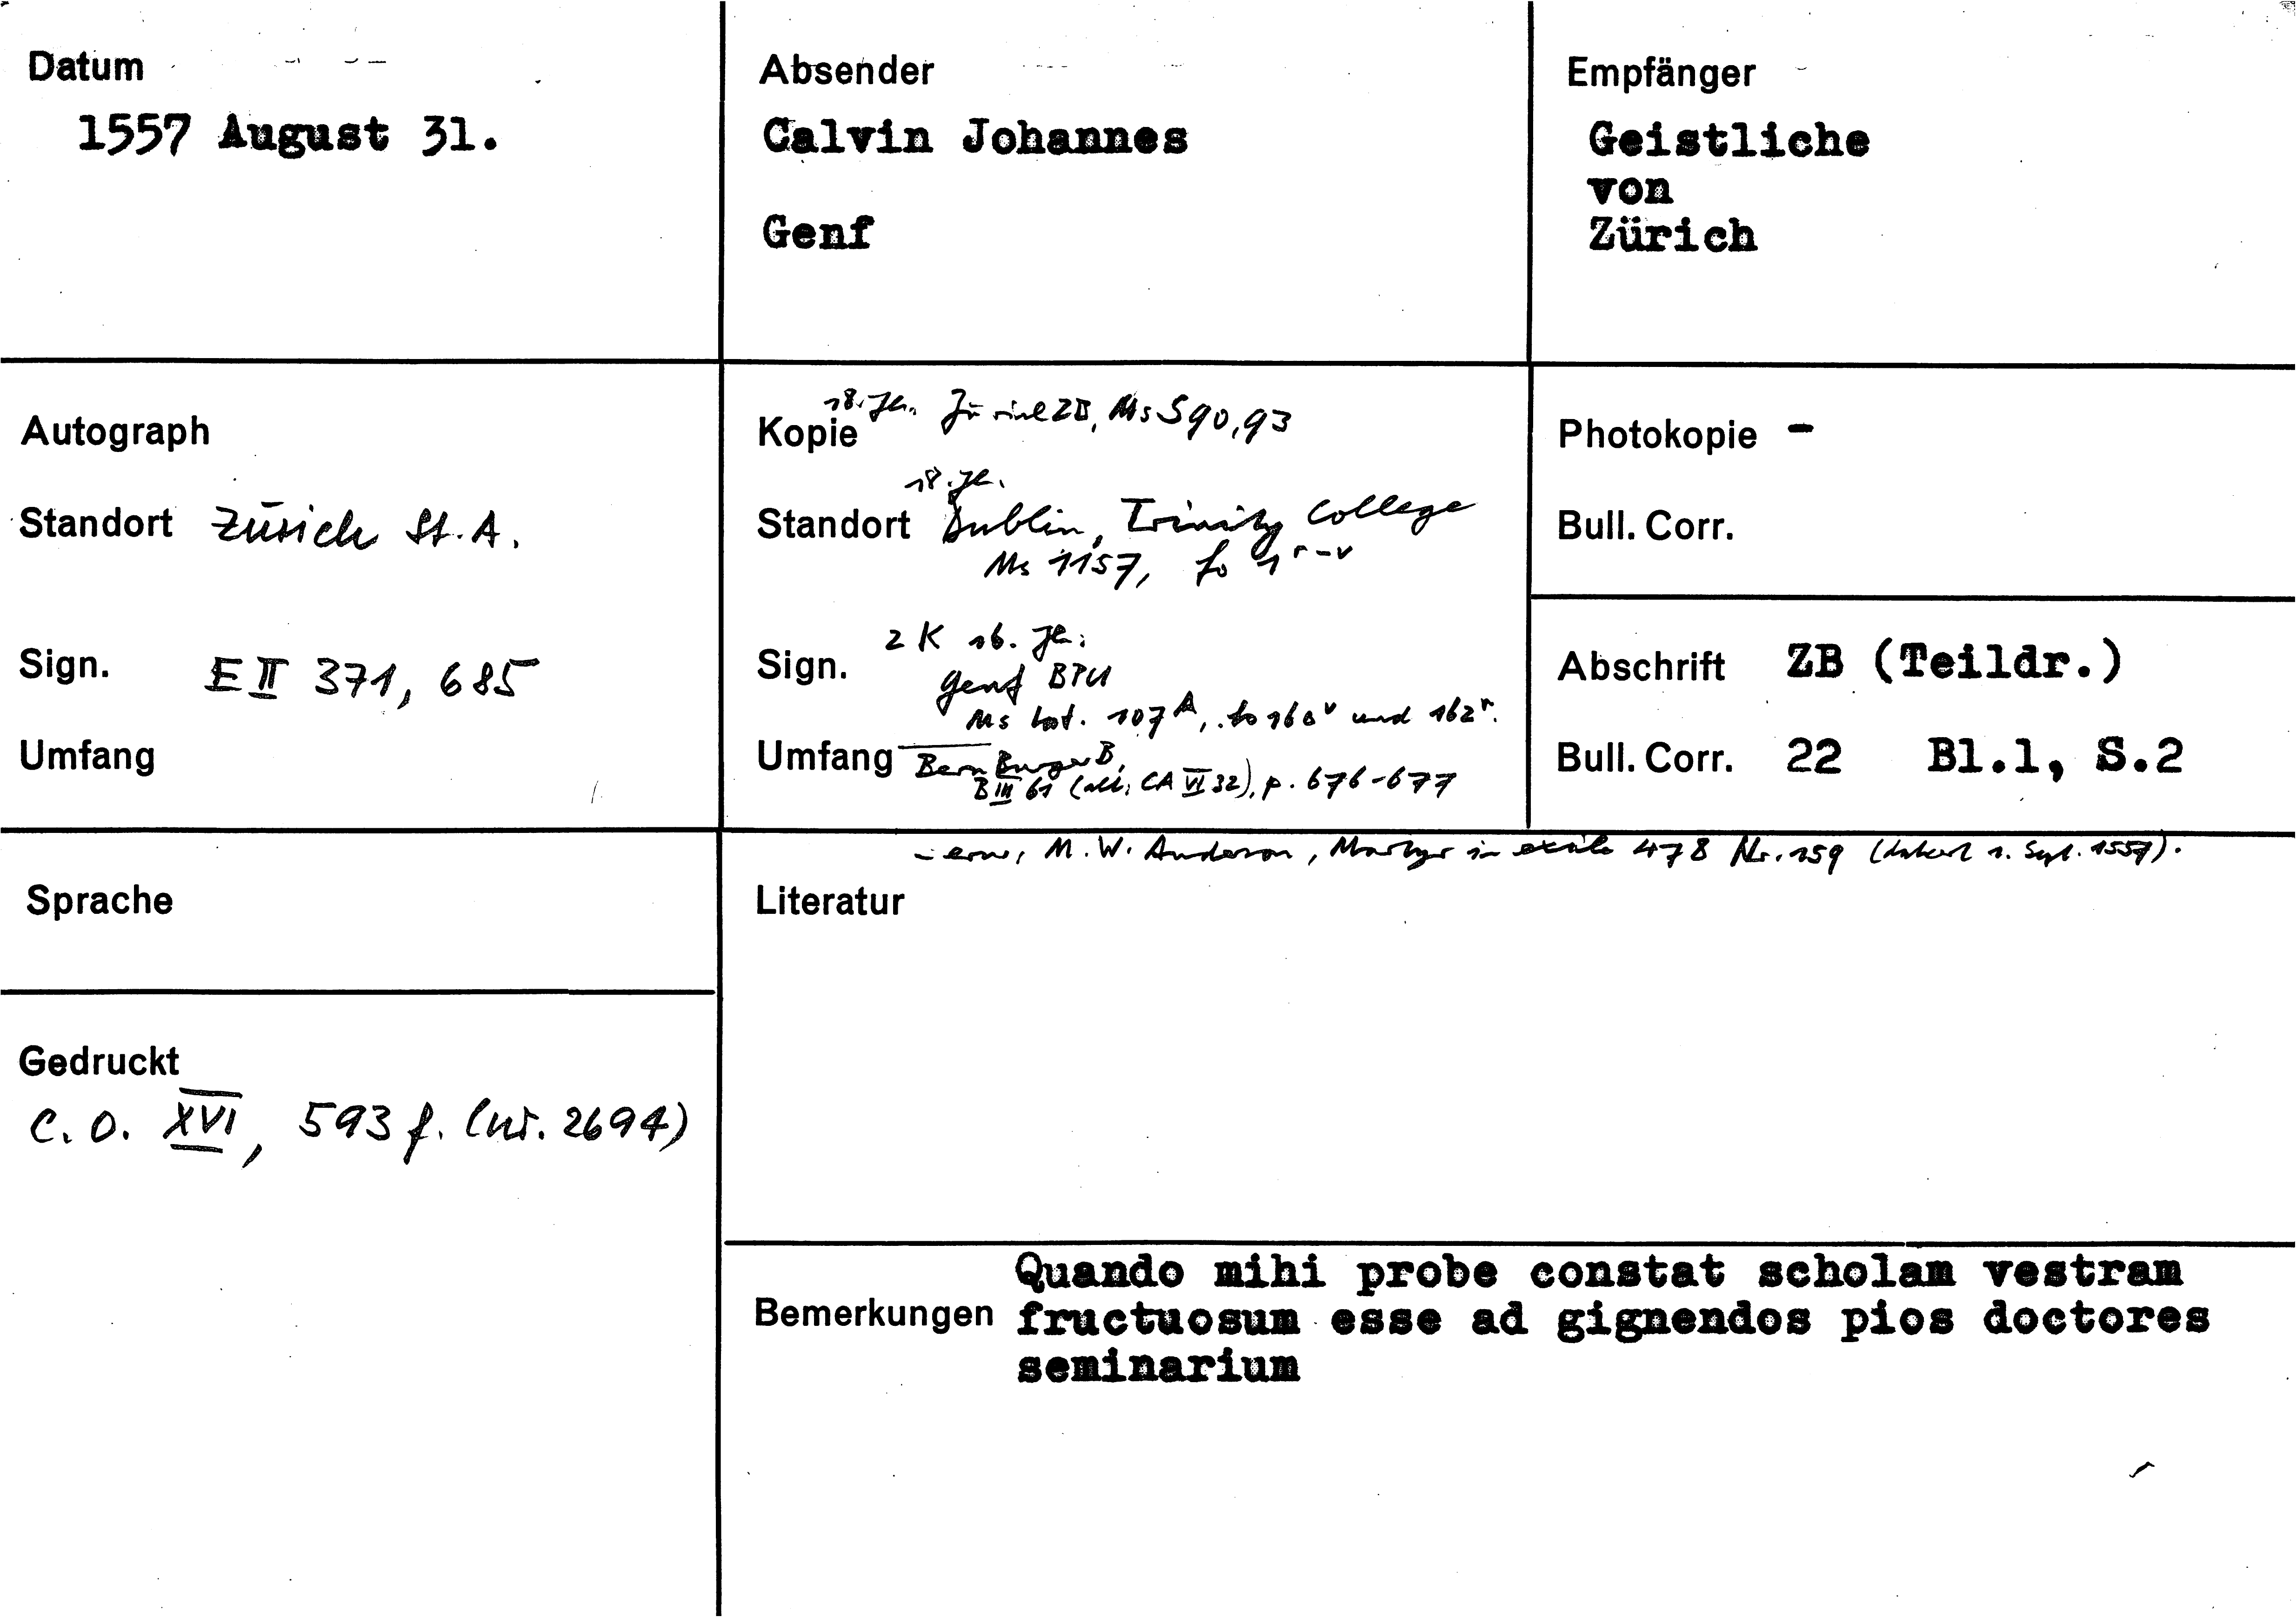 Datum
1557 August 31.
Absender
Calvin Johannes
Genf
Empfänger
Geistliche
von
Zürich
Autograph
Standort Zürich St.A.
Sign. E II 371, 685
Umfang
18. Jh. Zürich ZB, Ms S 90, 93
Kopie
18. Jh.
Standort Dublin, Trinity College
Ms 1157, fo 1 r-v
2 K 16. Jh.
Sign. Genf BPU
Ms lat. 107 A, fo 160v und 162r.
Umfang Bern BurgerB,
B III 61 (alt: CA VI 32), p. 676-677
Photokopie -
Bull. Corr.
Abschrift ZB (Teildr.)
Bull. Corr. 22 Bl.1, S.2
Sprache
Gedruckt
C. O. XVI, 593 f. (nr. 2694)
- erw. M. W. Anderson, Martyr in exile 478 Nr. 159 (datiert 1. Sept. 1557).
Literatur
Bemerkungen
Quando mihi probe constat scholam vestram
fructuosum esse ad gignendos pios doctores
seminarium